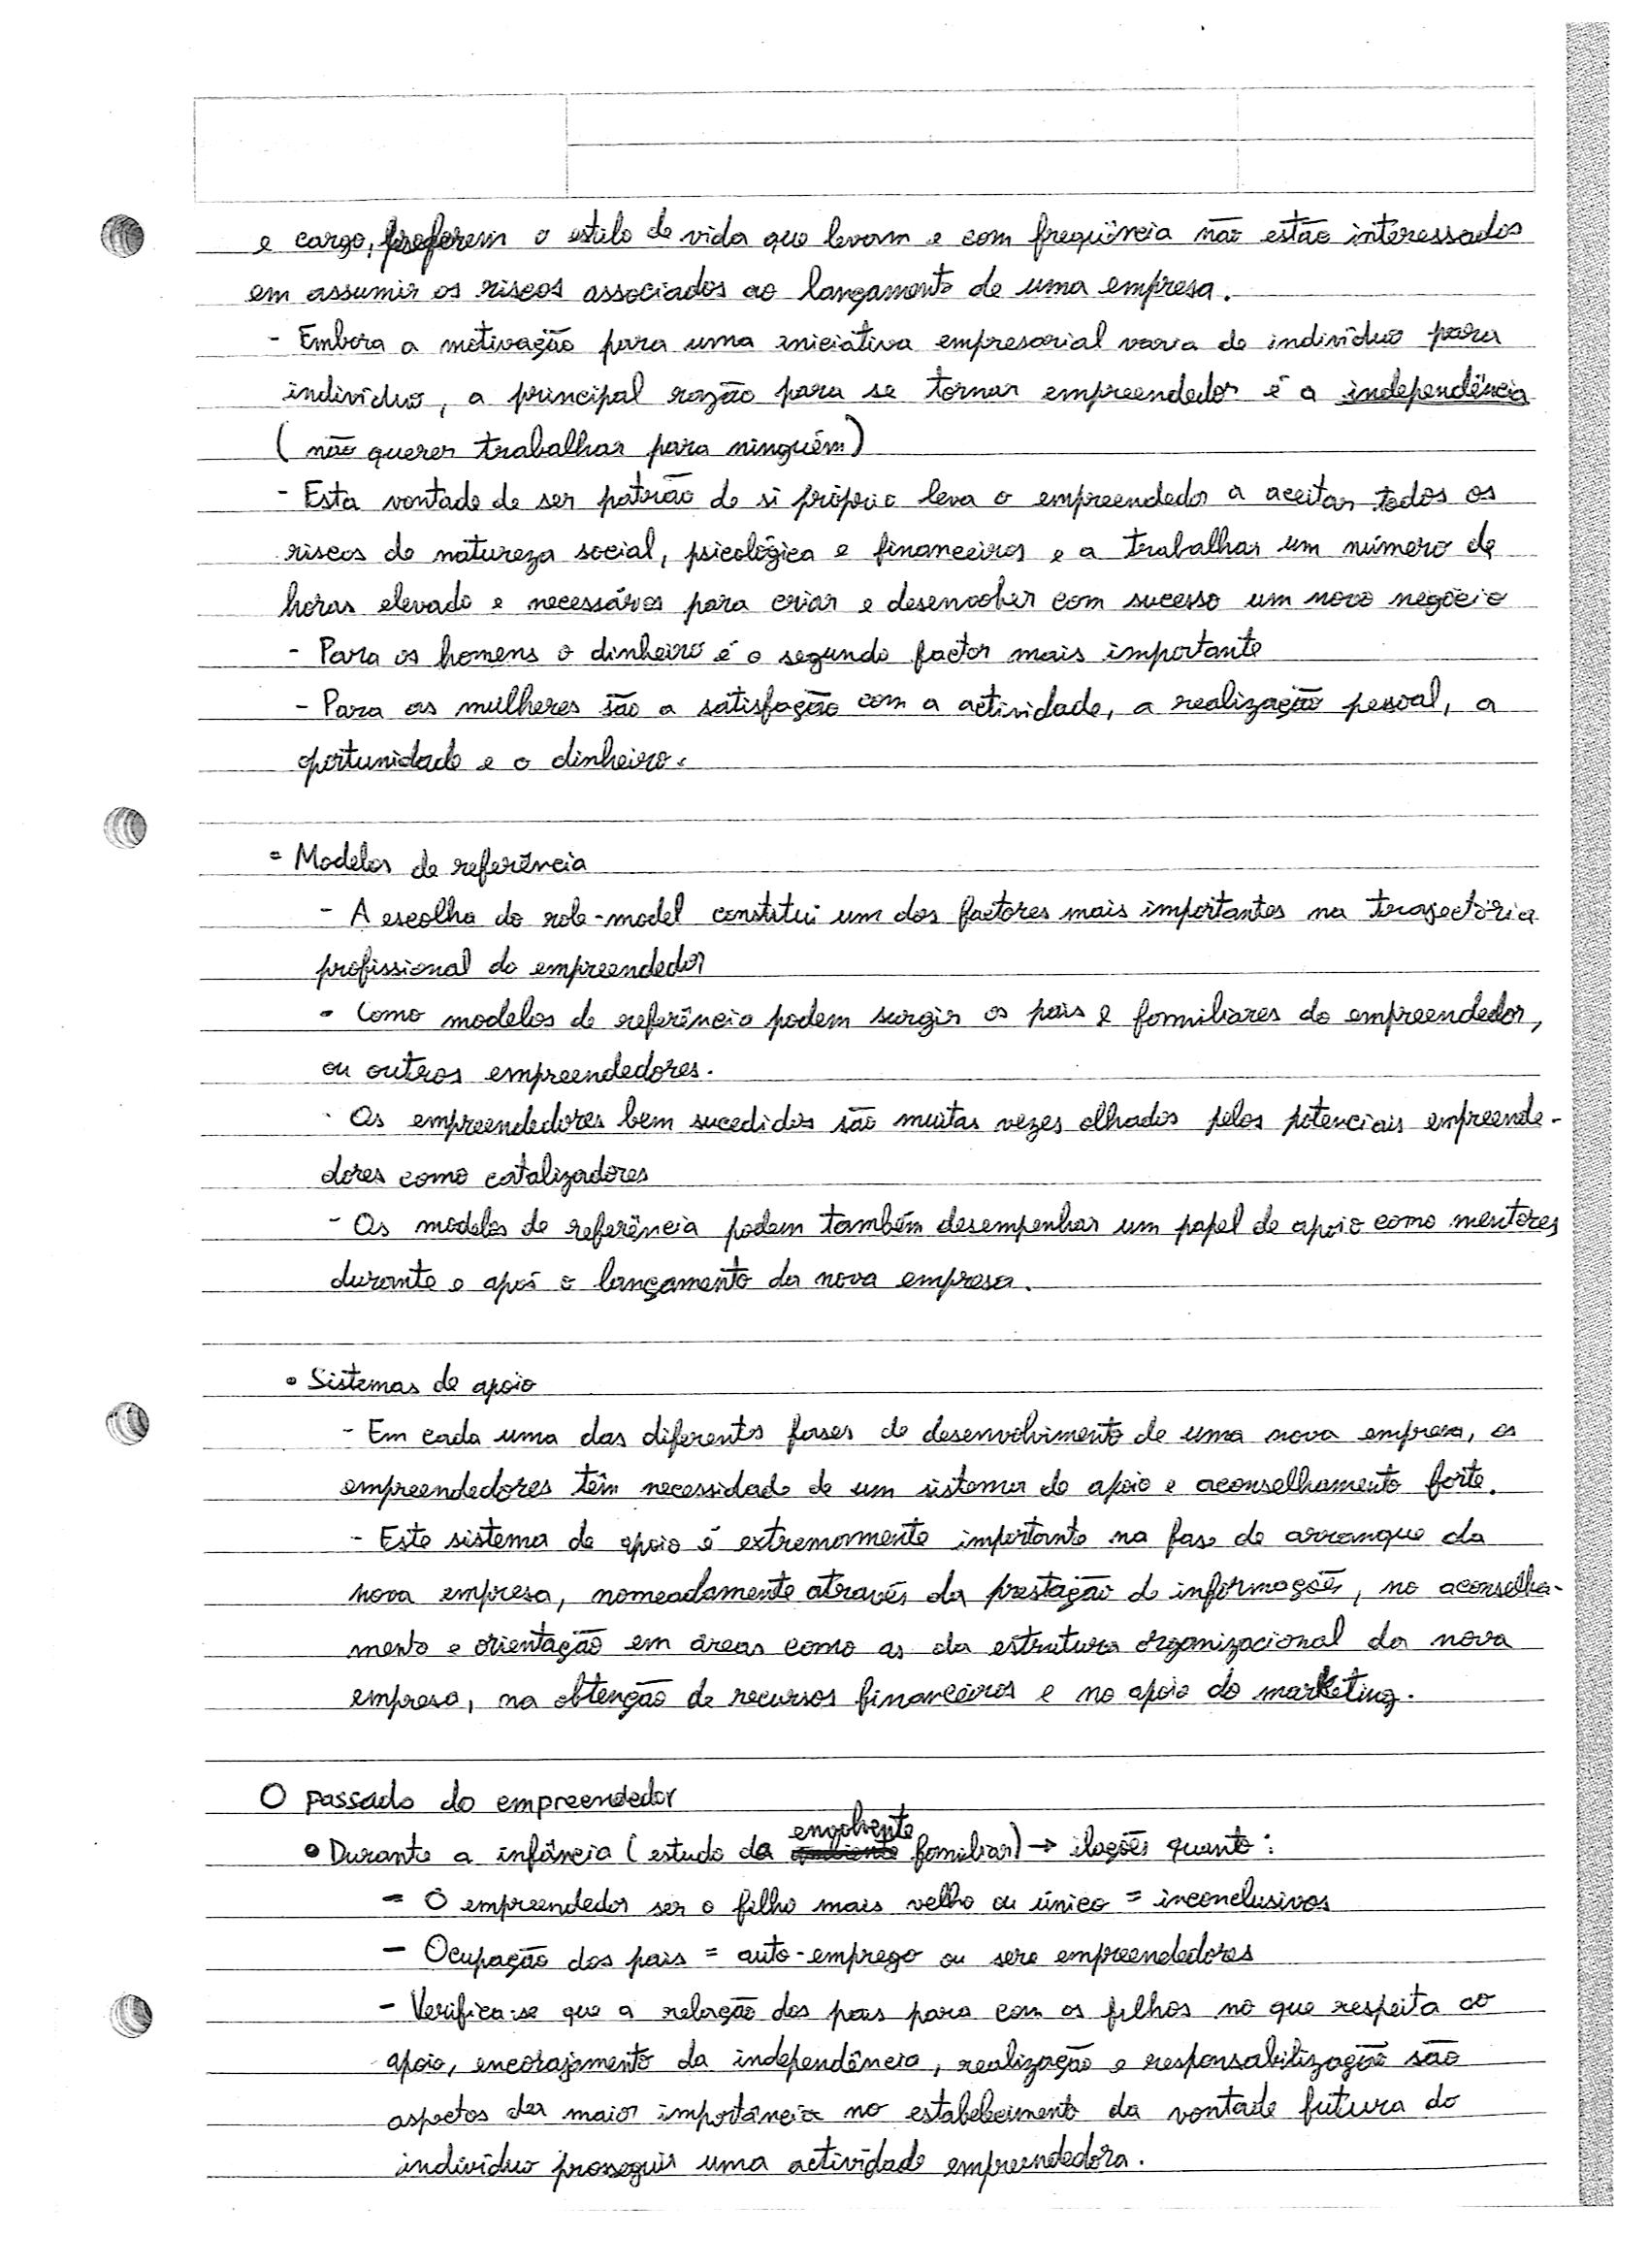 e cargo, preferem o estilo de vida que levam e com freqüência não estão interessados
em assumir os riscos associados ao lançamento de uma empresa.
- Embora a motivação para uma iniciativa empresarial varia de indivíduo para
indivíduo, a principal razão para se tornar empreendedor é a independência
(não querer trabalhar para ninguém)
- Esta vontade de ser patrão de si próprio leva o empreendedor a aceitar todos os
riscos de natureza social, psicológica e financeiros e a trabalhar um número de
horas elevado e necessários para criar e desenvolver com sucesso um novo negócio
- Para os homens o dinheiro é o segundo factor mais importante
- Para as mulheres são a satisfação com a actividade, a realização pessoal, a
oportunidade e o dinheiro.
• Modelos de referência
- A escolha do role-model constitui um dos factores mais importantes na trajectória
profissional do empreendedor
- Como modelos de referência podem surgir os pais e familiares do empreendedor,
ou outros empreendedores.
- Os empreendedores bem sucedidos são muitas vezes olhados pelos potenciais empreende-
dores como catalizadores
- Os modelos de referência podem também desempenhar um papel de apoio como mentores
durante e após o lançamento da nova empresa.
• Sistemas de apoio
- Em cada uma das diferentes fases de desenvolvimento de uma nova empresa, os
empreendedores têm necessidade de um sistema de apoio e aconselhamento forte.
- Este sistema de apoio é extremamente importante na fase de arranque da
nova empresa, nomeadamente através da prestação de informações, no aconselha-
mento e orientação em áreas como as da estrutura organizacional da nova
empresa, na obtenção de recursos financeiros e no apoio do marketing.
O passado do empreendedor
• Durante a infância (estudo da envolvente familiar) → ilações quanto:
- O empreendedor ser o filho mais velho ou único = inconclusivos
- Ocupação dos pais = auto-emprego ou sere empreendedores
- Verifica-se que a relação dos pais para com os filhos no que respeita ao
apoio, encorajamento da independência, realização e responsabilização são
aspectos da maior importância no estabelecimento da vontade futura do
indivíduo prosseguir uma actividade empreendedora.